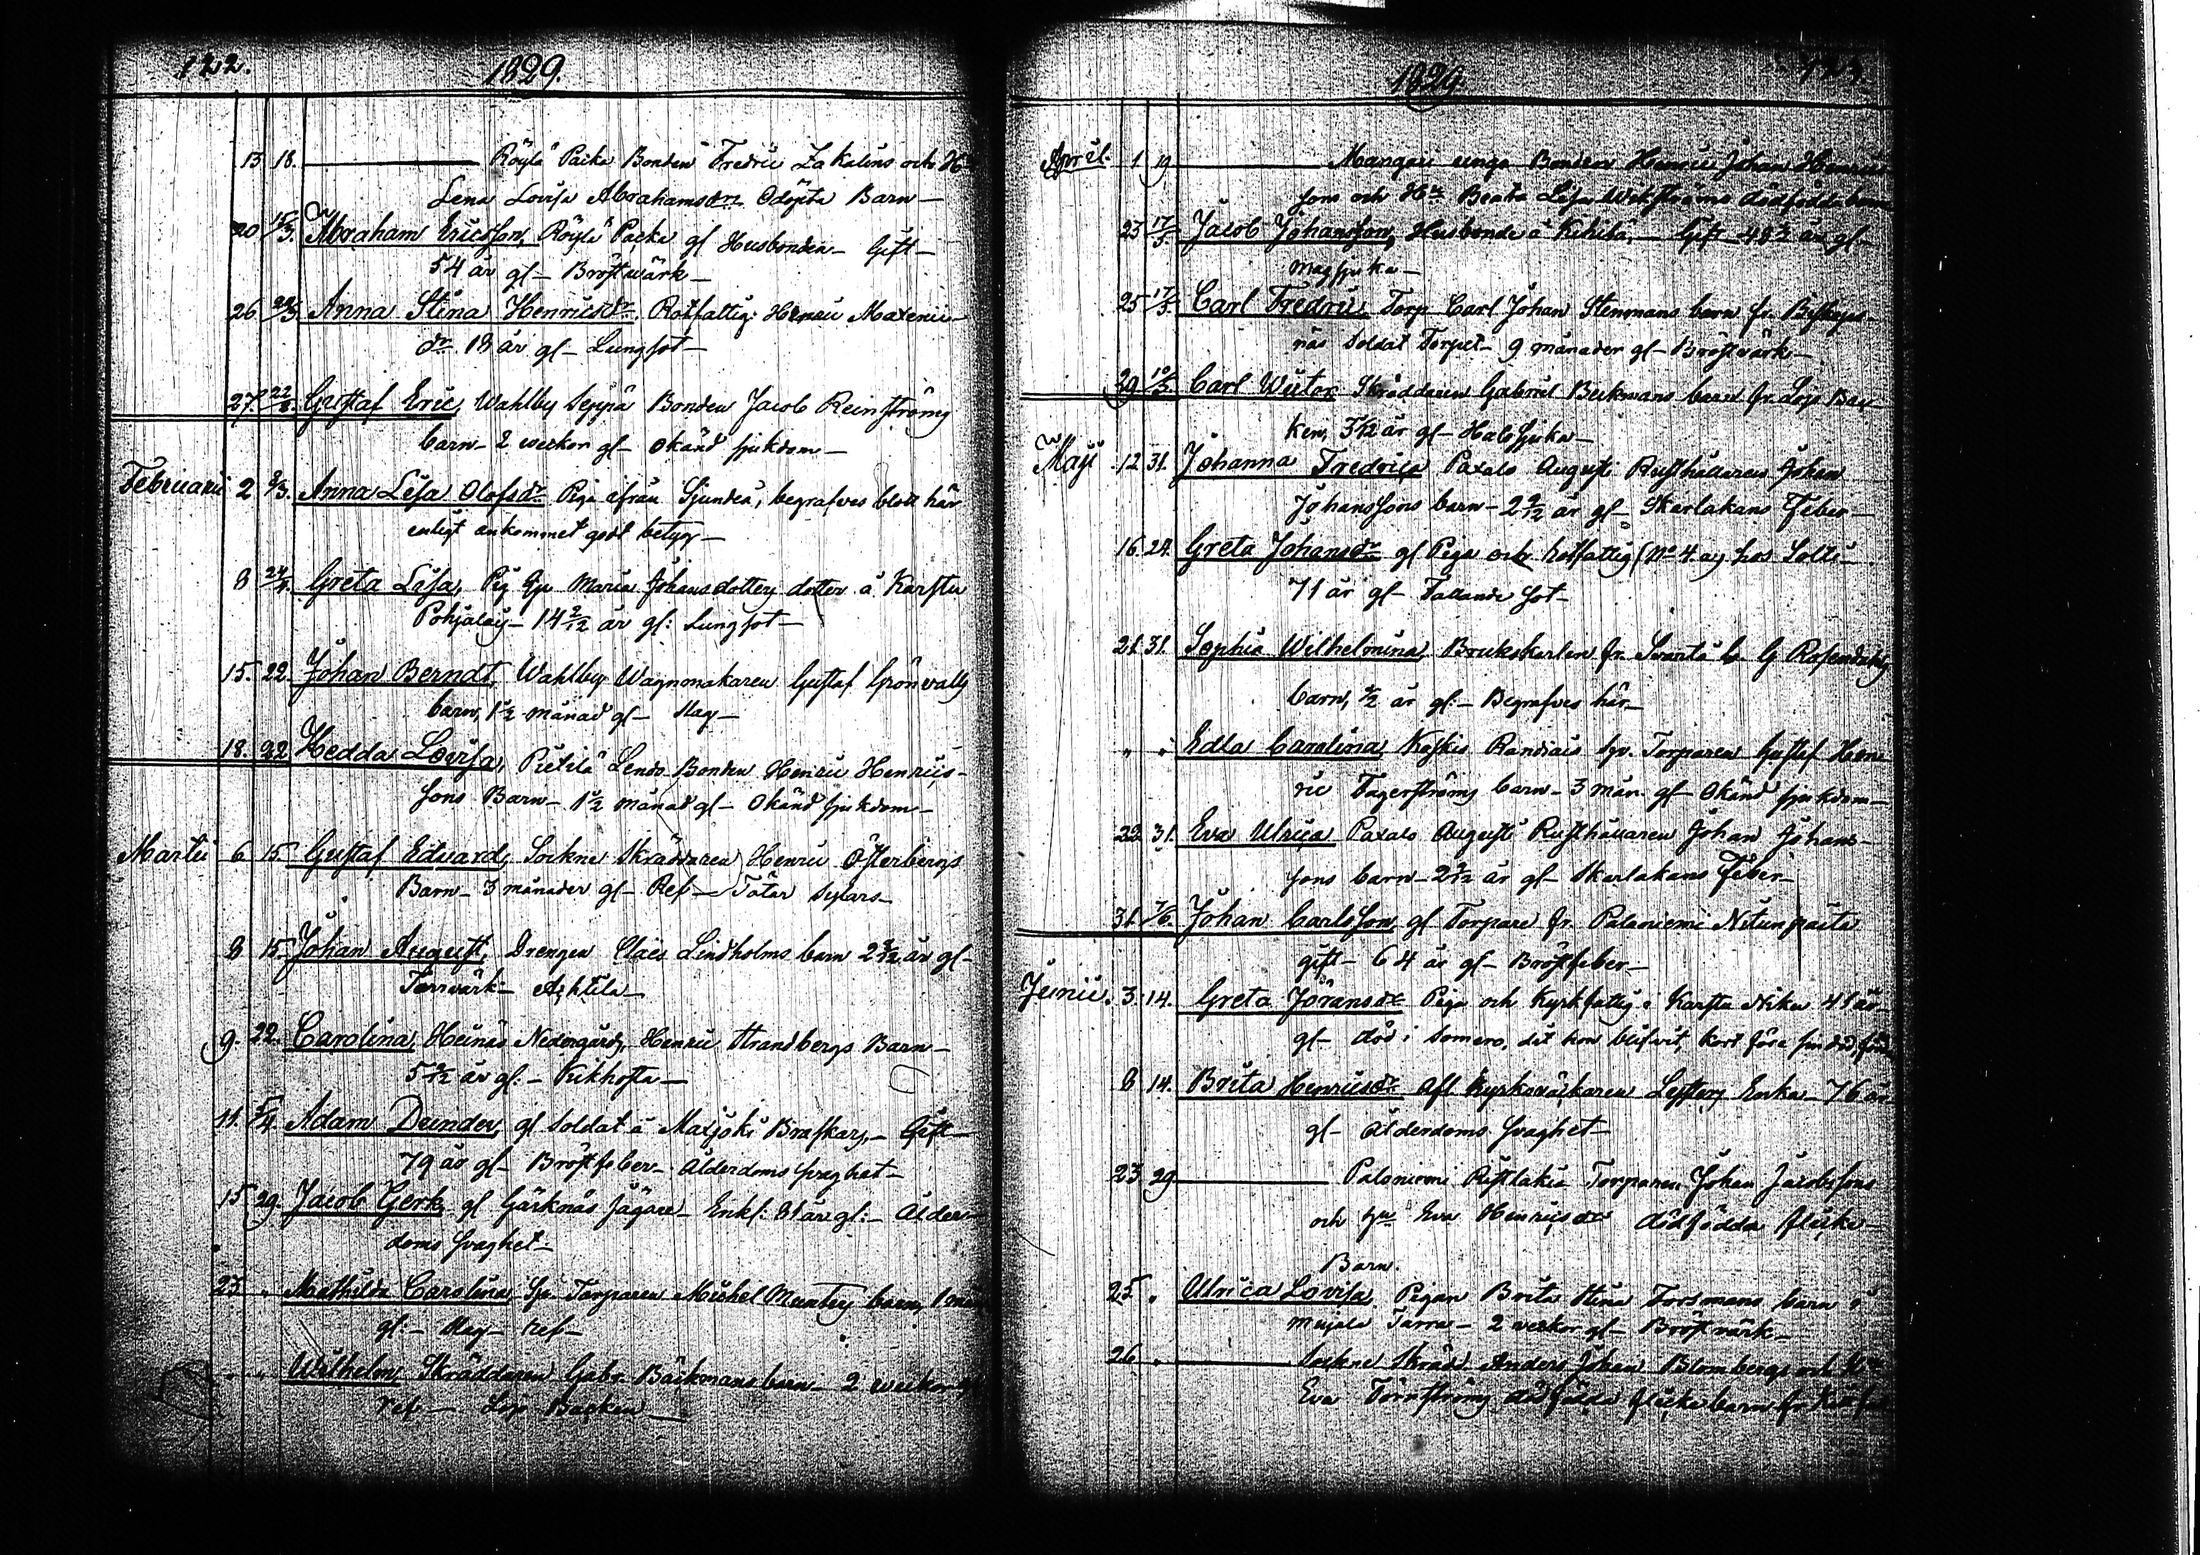 122.
1829.
13 18. Röylä Packa Bonden Fredric Zakalins och H
Lena Lovisa Abrahamsdrs Odöpta Barn
20 15/3. Abraham Ericsson, Röylä Packa gl Husbonden Gift
54 år gl Bröstwärk
26 22/3 Anna Stina Henricsdr. Rotfattig Henric
dr 18 år gl Lungsot
27. 22/2. Gustaf Eric, Wahlby Seppä Bonden Jacob Reinströms
barn 2 weckor gl okänd sjukdom
Februarii 2 8/3. Anna Lisa Olofsdr Piga ifrån Sjundeå, begrafves blott här
enligt ankommet godt betyg
8 Greta Lisa, Pig Maria Johansdotters dotter å Karstu
Pohjala 14 2/12 år gl: Lungsot
15. 22. Johan Berndt, Wahlby Wagnmakaren Gustaf Grönvalls
barn, 1 1/2 månad gl Slag
18. 22 Hedda Lovisa, Pietilä Lends Bonden Henric Henrics-
sons Barn 1 1/2 månad gl Okänd sjukdom
Martii 6 15 Gustaf Edvard, Sockne Skräddaren Henric Österbergs
Barn 3 månader gl Ref Tötar
8 15. Johan August, Drengen Claes Lindholms barn år gl
Torrvärk Ahtila
9. 22. Carolina, Heinäs Nedergårds Henric Strandbergs Barn
år gl: Kikhosta
11. 5/4. Adam Dunder, gl Soldat å Maxjoki Braskars, Gift
79 år gl Bröstfeber ålderdoms svaghet
15 29. Jacob Gerk, gl Gerknäs Jägare Enkl: 81 år gl: Ålder
doms svaghet
23 " Mathilda Carolina, Torparen Michel barn, 1 mån
gl: Slag ref
" " Wilhelm, Skräddaren Gabr. Bäckmans barn 2 weckor
ref Lojo Backen
1829.
123.
April. 1 19 Mangaris unga Bonden Henric Johan Henric
sons och Hu Beata Lisa Wekströms dödfödda barn
23 17/5. Jacob Johansson, Husbonde å Kihilä, Gift år gl
Magsjuka
25 17/5. Carl Fredric, Torp Carl Johan Stenmans barn fr. Biskops
näs Soldat Torpet 9 månader gl Bröstwärk
29 10/5 Carl Wictor Skräddaren Gabriel Beckmans barn fr. Lojo Bac
ken, år gl Halssjuka
Maji 12 31. Johanna Fredrica Paxalo Augusti Rusthållaren Johan
Johanssons barn år gl Skarlakans Feber
16 24. Greta Johansdr gl Piga och rotfattig (No 4. a) hos Solti
71 år gl Fallande sot
21. 31. Sophia Wilhelmina, Brukskarlen fr. Svartå C. G Rosendahls
barn, 1/2 år gl: Begrafves här
" " Edla Carolina, Kaskis Torparen Gustaf Hen
ric Fagerströms barn 3 mån. gl Okänd sjukdom
22 31. Eva Ulrica Paxalo Augusti Rusthållaren Johan Johans-
sons barn år gl Skarlakans Feber
31. 7/6. Johan Carlsson, gl Torpare fr. Palaniemi
gift 64 år gl Bröstfeber
Junii. 3. 14. Greta Joransdr Piga och Kyrkfattig i Karstu 41 år
gl död i Somero, dit hon blifvit, kort före sin död,
8 14. Brita Henricsdr afl Kyrkowäktaren Enka 76 år
gl Ålderdoms svaghet
23 29 Paloniemi Torparen Johan Jacobssons
och Hu Eva Henricsdrs dödfödda flicke-
Barn.
25. " Ulrica Lovisa, Pigan Brita Stina Forsmans barn å
Maxala 2 veckor gl Bröstvärk
26 " Sockne Skräd. Anders Johan Blombergs och Hu
Eva Törnströms dödfödda flickebarn fr.